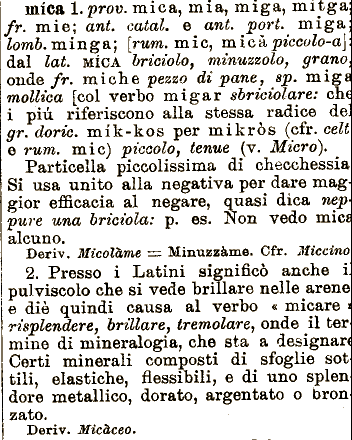 mica 1. prov. mica, mia, miga, mitga;
fr. mie; ant. catal. e ant. port. miga;
lomb. minga; [rum. mic, mică piccolo-a]:
dal lat. MÌCA briciolo, minuzzolo, grano,
onde fr. miche pezzo di pane, sp. miga
mollica [col verbo migar sbriciolare: che
i più riferiscono alla stessa radice del
gr. doric. mik-kos per mikròs (cfr. celt.
e rum. mic) piccolo, tenue (v. Micro).
Particella piccolissima di checchessia.
Si usa unito alla negativa per dare mag-
gior efficacia al negare, quasi dica nep-
pure una briciola: p. es. Non vedo mica
alcuno.
Deriv. Micolàme = Minuzzàme. Cfr. Miccino.
2. Presso i Latini significò anche il
pulviscolo che si vede brillare nelle arene
e diè quindi causa al verbo « micare »
risplendere, brillare, tremolare, onde il ter-
mine di mineralogia, che sta a designare
Certi minerali composti di sfoglie sot-
tili, elastiche, flessibili, e di uno splen-
dore metallico, dorato, argentato o bron-
zato.
Deriv. Micàceo.